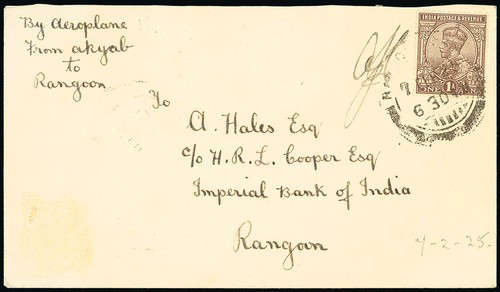 By Aeroplane
From akyab
to
Rangoon
INDIA POSTAGE & REVENUE
1A
6 30
To
A. Hales Esq
c/o H. R. L. Cooper Esq
Imperial Bank of India
Rangoon
7-2-25.